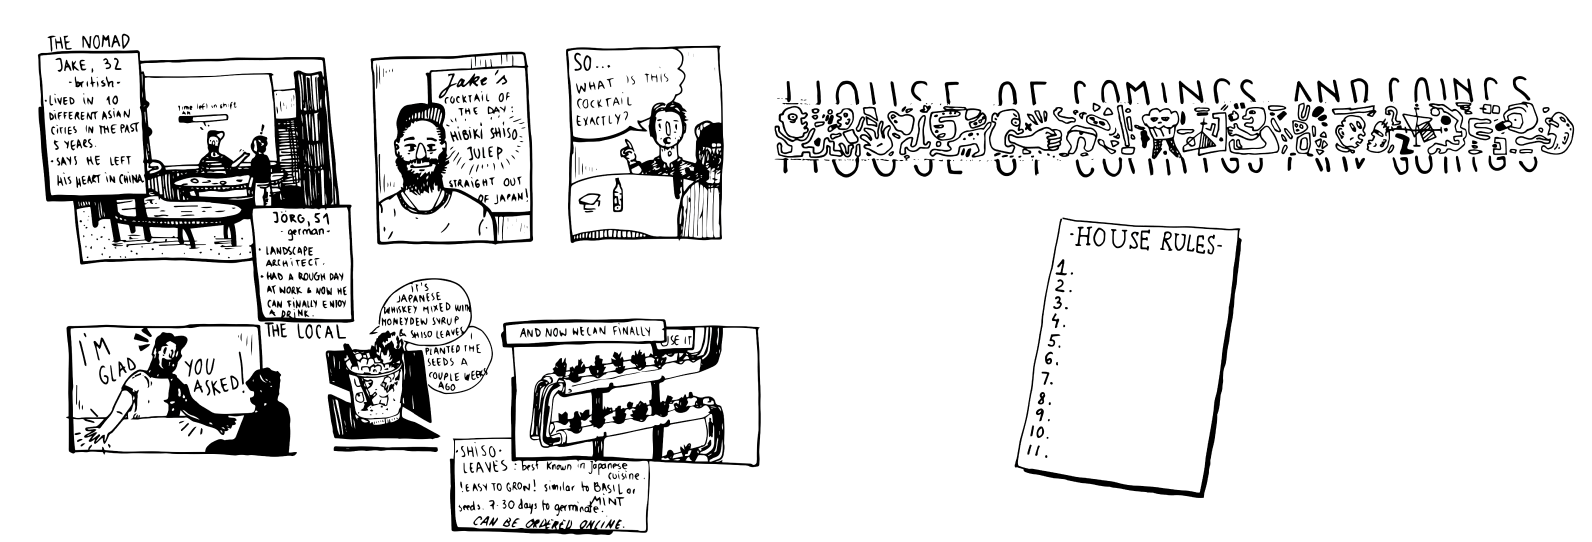 THE NOMAD
JAKE, 32
-british-
·LIVED IN 10
DIFFERENT ASIAN
CITIES IN THE PAST
5 YEARS.
·SAYS HE LEFT
HIS HEART IN CHINA
Time left in shift
4H
JÖRG, 51
-german-
· LANDSCAPE
ARCHITECT.
· HAD A ROUGH DAY
AT WORK & NOW HE
CAN FINALLY ENJOY
A DRINK.
THE LOCAL
Jake's
COCKTAIL OF
THE DAY:
HIBIKI SHISO
JULEP
STRAIGHT OUT
OF JAPAN!
SO...
WHAT IS THIS
COCKTAIL
EXACTLY?
I'M
GLAD
YOU
ASKED!
IT'S
JAPANESE
WHISKEY MIXED WITH
HONEYDEW SYRUP
& SHISO LEAVES
I
PLANTED THE
SEEDS A
COUPLE WEEKS
AGO
AND NOW WE CAN FINALLY
USE IT
·SHISO·
LEAVES: best known in Japanese
cuisine.
!EASY TO GROW! similar to BASIL or
MINT
seeds. 7-30 days to germinate.
CAN BE ORDERED ONLINE.
HOUSE OF COMINGS AND GOINGS
HOUSE OF COMINGS AND GOINGS
-HOUSE RULES-
1.
2.
3.
4.
5.
6.
7.
8.
9.
10.
11.